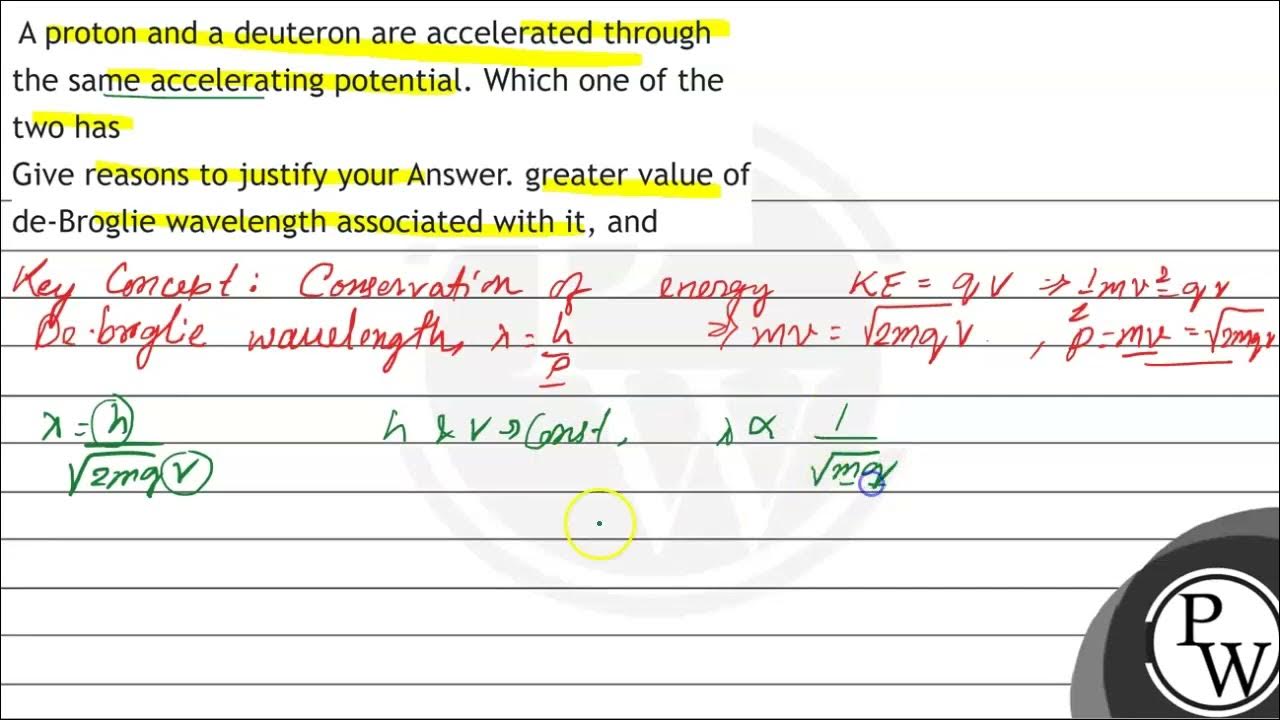 A proton and a deuteron are accelerated through
the same accelerating potential. Which one of the
two has
Give reasons to justify your Answer. greater value of
de-Broglie wavelength associated with it, and
Key Concept: Conservation of energy KE = qV ⇒ 1/2 mv² = qV
De-broglie wavelength, λ = h/p ⇒ mv = √2mqV , p = mv = √2mqV
λ = h/√2mqV h & V → Const, λ ∝ 1/√mq
P
W